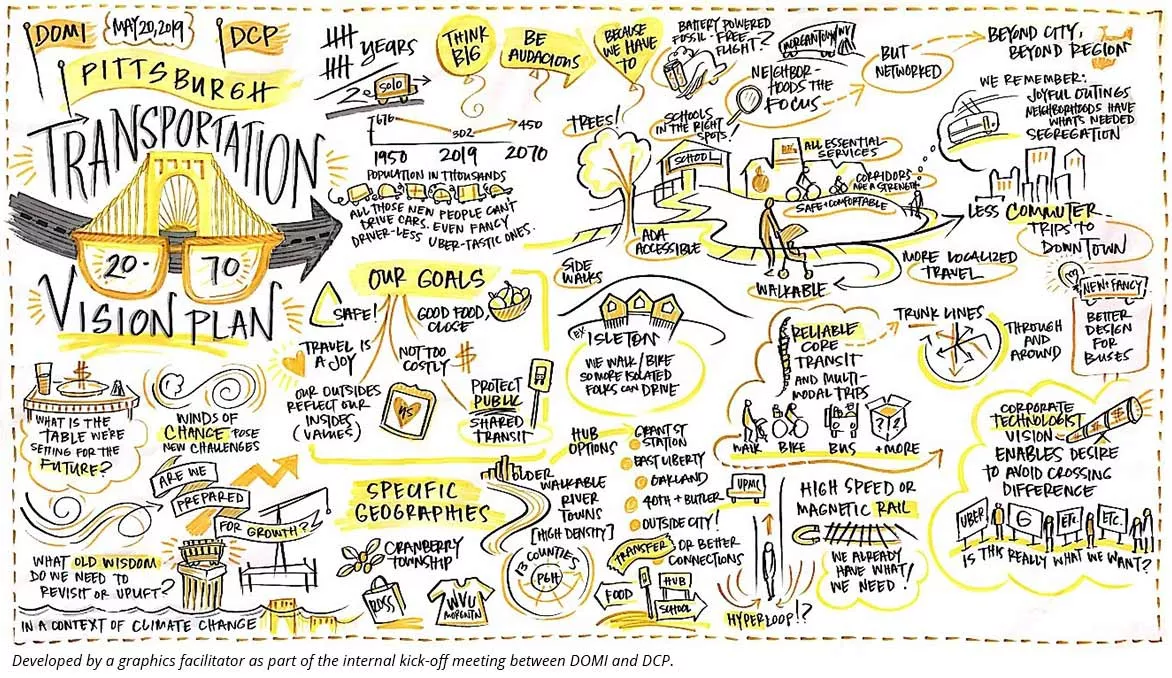 DOMI
MAY 20, 2019
DCP
PITTSBURGH
TRANSPORTATION
20-
70
VISION PLAN
YEARS
SOLO
676
302
450
1950
2019
2070
POPULATION IN THOUSANDS
ALL THOSE NEW PEOPLE CAN'T
DRIVE CARS. EVEN FANCY
DRIVER-LESS UBER-TASTIC ONES.
THINK
BIG
BE
AUDACIOUS
BECAUSE
WE HAVE
TO
BATTERY POWERED
FOSSIL-FREE
FLIGHT?
MORGANTOWN WV
NEIGHBOR-
HOODS THE
FOCUS
BUT
NETWORKED
BEYOND CITY,
BEYOND REGION
WE REMEMBER:
JOYFUL OUTINGS
NEIGHBORHOODS HAVE
WHAT'S NEEDED
SEGREGATION
TREES!
SCHOOLS
IN THE RIGHT
SPOTS!
SCHOOL
ALL ESSENTIAL
SERVICES
CORRIDORS
ARE A STRENGTH
SAFE + COMFORTABLE
ADA
ACCESSIBLE
WALKABLE
LESS COMMUTER
TRIPS TO
DOWNTOWN
MORE LOCALIZED
TRAVEL
OUR GOALS
SAFE!
GOOD FOOD,
CLOSE
TRAVEL IS
A JOY
NOT TOO
COSTLY
$
OUR OUTSIDES
REFLECT OUR
INSIDES
(VALUES)
PROTECT
PUBLIC
SHARED
TRANSIT
SIDE
WALKS
EX
ISLETON
WE WALK/BIKE
SO MORE ISOLATED
FOLKS CAN DRIVE
RELIABLE
CORE
TRANSIT
AND MULTI-
MODAL TRIPS
WALK
BIKE
BUS
??
+MORE
TRUNK LINES
THROUGH
AND
AROUND
NEW + FANCY
BETTER
DESIGN
FOR
BUSES
$
WHAT IS THE
TABLE WE'RE
SETTING FOR THE
FUTURE?
WINDS OF
CHANGE POSE
NEW CHALLENGES
ARE WE
PREPARED
FOR GROWTH?
WHAT OLD WISDOM
DO WE NEED TO
REVISIT OR UPLIFT?
IN A CONTEXT OF CLIMATE CHANGE
SPECIFIC
GEOGRAPHIES
CRANBERRY
TOWNSHIP
ROSS
WVU
MORGNTN
OLDER
WALKABLE
RIVER
TOWNS
[HIGH DENSITY]
COUNTIES
PGH
HUB
OPTIONS
GRANT ST
STATION
EAST LIBERTY
OAKLAND
40TH + BUTLER
OUTSIDE CITY!
TRANSFER
OR BETTER
CONNECTIONS
FOOD
HUB
SCHOOL
UPMC
HYPERLOOP!?
HIGH SPEED OR
MAGNETIC RAIL
WE ALREADY
HAVE WHAT
WE NEED!
CORPORATE
TECHNOLOGIST
VISION
ENABLES DESIRE
TO AVOID CROSSING
DIFFERENCE
UBER
G
ETC.
ETC.
IS THIS REALLY WHAT WE WANT?
Developed by a graphics facilitator as part of the internal kick-off meeting between DOMI and DCP.